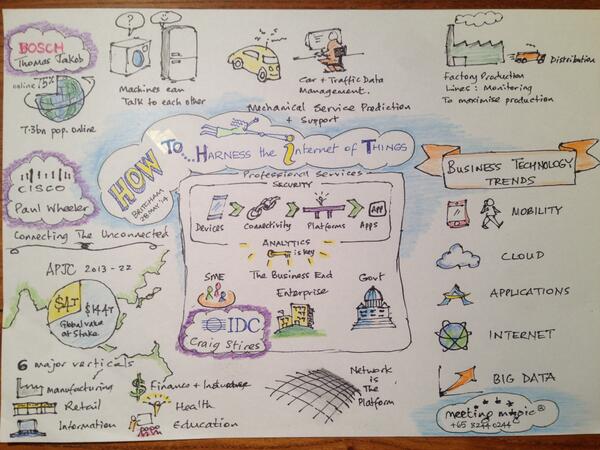 BOSCH
Thomas Jakob
online 75%
7.3bn pop. online
?
Machines can
Talk to each other
Car + Traffic Data
Management.
Mechanical Service Prediction
+ Support
Distribution
Factory Production
Lines: Monitoring
To maximise production
HOW TO... HARNESS the internet OF THINGS
BRITCHAM
28 MAY '14
CISCO
Paul Wheeler
Connecting The Unconnected
APJC 2013-22
$4T
$14.4T
Global value
at Stake
6 major verticals
Manufacturing
Retail
Information
Finance +
Health
Education
Professional Services
SECURITY
Devices
Connectivity
Platforms
App
Apps
ANALYTICS
is key
The Business End
SME
Enterprise
Govt
IDC
Craig Stires
Network
is
The
Platform
BUSINESS TECHNOLOGY
TRENDS
MOBILITY
CLOUD
APPLICATIONS
INTERNET
BIG DATA
meeting magic®
+65 8244 0244